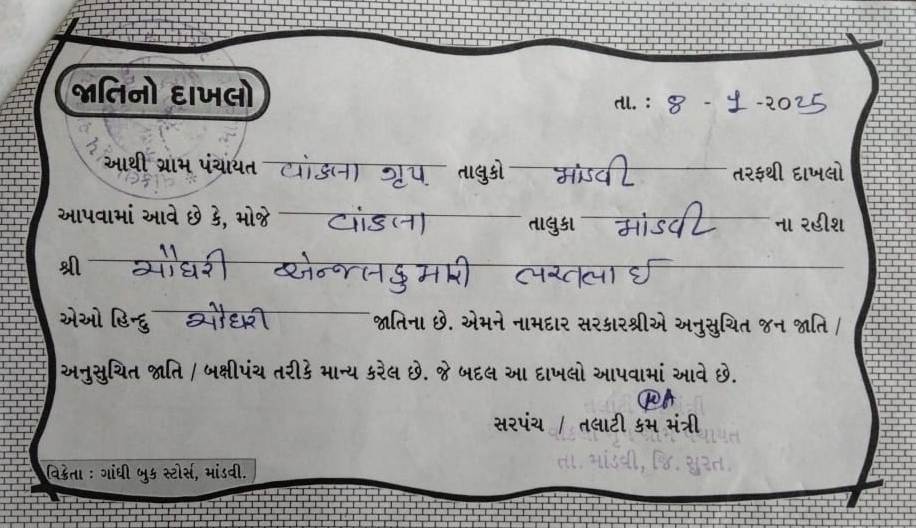 જાતિનો દાખલો
તા. : ૪ - ૧ -૨૦૨૫
આથી ગ્રામ પંચાયત વાંકલા ગૃપ તાલુકો માંડવી તરફથી દાખલો
આપવામાં આવે છે કે, મોજે વાંકલા તાલુકા માંડવી ના રહીશ
શ્રી ચૌધરી એન્જલકુમારી
એઓ હિન્દુ ચૌધરી જાતિના છે. એમને નામદાર સરકારશ્રીએ અનુસુચિત જન જાતિ /
અનુસુચિત જાતિ / બક્ષીપંચ તરીકે માન્ય કરેલ છે. જે બદલ આ દાખલો આપવામાં આવે છે.
સરપંચ / તલાટી કમ મંત્રી
તલાટી કમ મંત્રી
વાંકલા ગૃપ ગ્રામ પંચાયત
તા. માંડવી, જિ. સુરત.
વિક્રેતા : ગાંધી બુક સ્ટોર્સ, માંડવી.